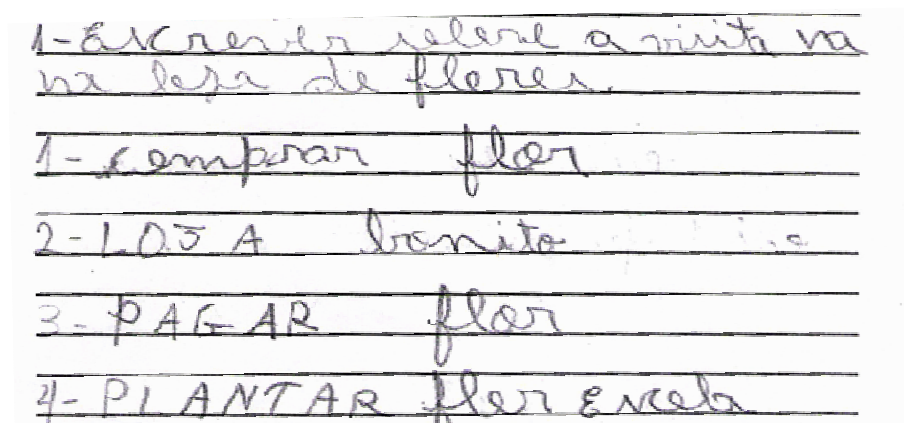 1-Escrever sobre a visita na
na loja de flores.
1-comprar flor
2-LOJA bonito
3-PAGAR flor
4-PLANTAR flor Escola